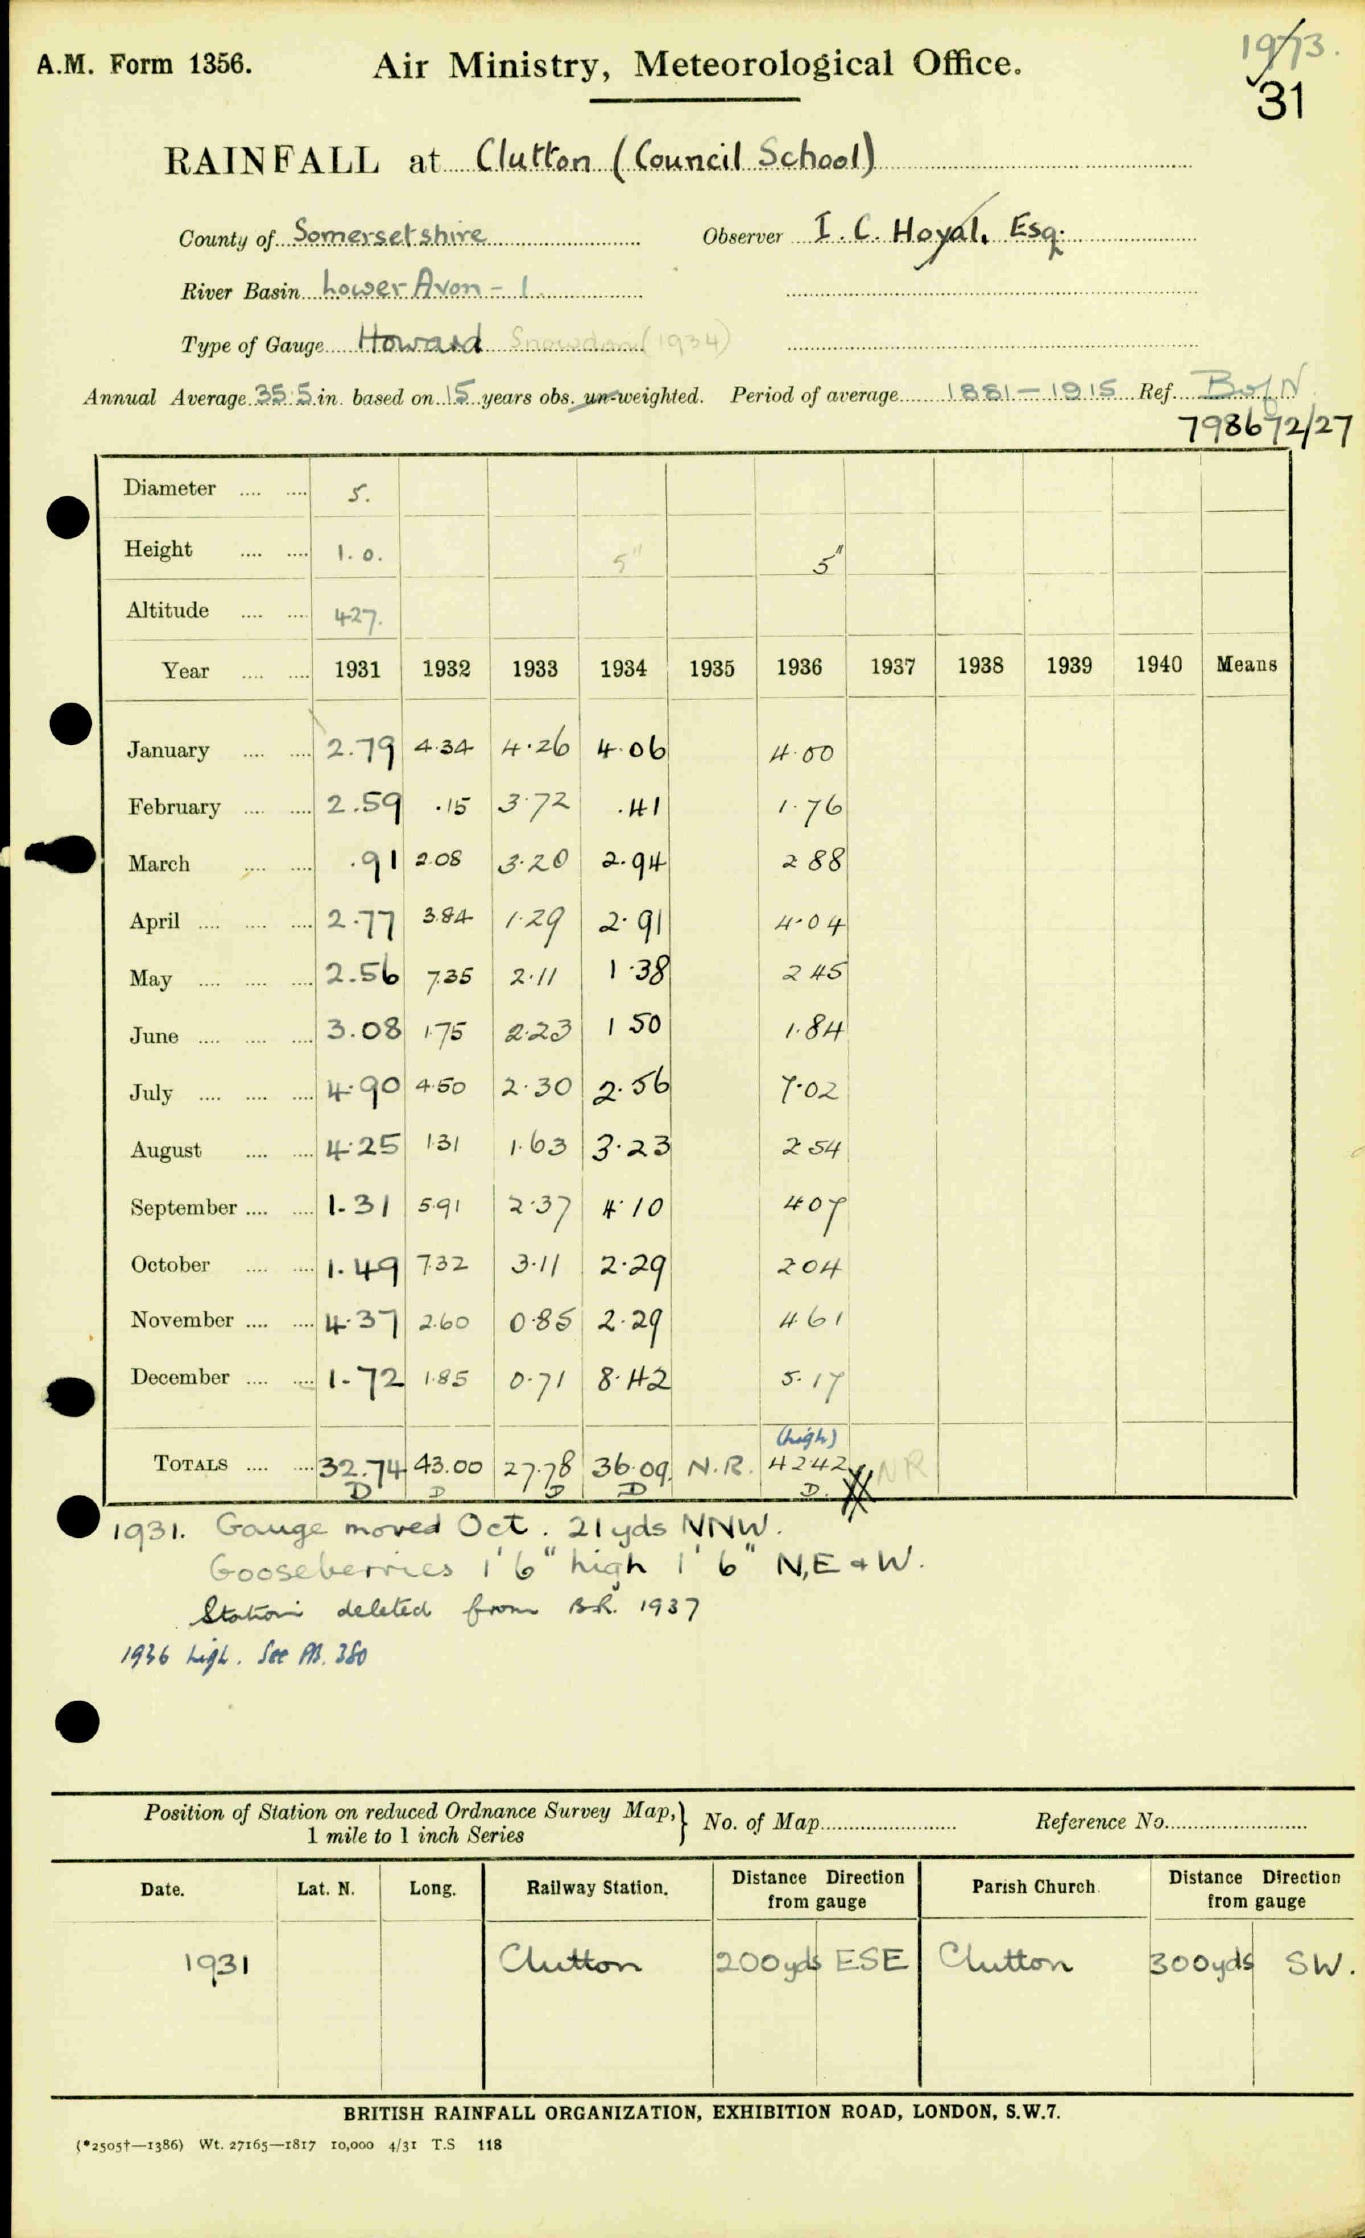 A.M. Form 1356. Air Ministry, Meteorological Office. 1973.
31
RAINFALL at Clutton (Council School)
County of Somersetshire Observer I. C. Hoyal, Esq.
River Basin Lower Avon - 1
Type of Gauge Howard Snowdon (1934)
Annual Average 35.5 in. based on 15 years obs. un-weighted. Period of average 1881-1915 Ref. B of N
798672/27
Diameter 5.
Height 1.0. 5" 5"
Altitude 427.
Year 1931 1932 1933 1934 1935 1936 1937 1938 1939 1940 Means
January 2.79 4.34 4.26 4.06 4.00
February 2.59 .15 3.72 .41 1.76
March .91 2.08 3.20 2.94 2 88
April 2.77 3.84 1.29 2.91 4.04
May 2.56 7.35 2.11 1.38 2 45
June 3.08 1.75 2.23 1 50 1.84
July 4.90 4.50 2.30 2.56 7.02
August 4.25 1.31 1.63 3.23 2 54
September 1.31 5.91 2.37 4.10 4 07
October 1.49 7.32 3.11 2.29 2 04
November 4.37 2.60 0.85 2.29 4 61
December 1.72 1.85 0.71 8.42 5.17
(high)
TOTALS 32.74 43.00 27.78 36.09 N.R. 42 42 NR
D D D D D.
1931. Gauge moved Oct. 21yds NNW.
Gooseberries 1' 6" high 1' 6" N, E & W.
Station deleted from B.R. 1937
1936 high. See 380
Position of Station on reduced Ordnance Survey Map, } No. of Map Reference No.
1 mile to 1 inch Series
Date. Lat. N. Long. Railway Station. Distance Direction from gauge Parish Church Distance Direction from gauge
1931 Clutton 200yds ESE Clutton 300yds SW.
BRITISH RAINFALL ORGANIZATION, EXHIBITION ROAD, LONDON, S.W.7.
(*2505†—1386) Wt. 27165—1817 10,000 4/31 T.S 118